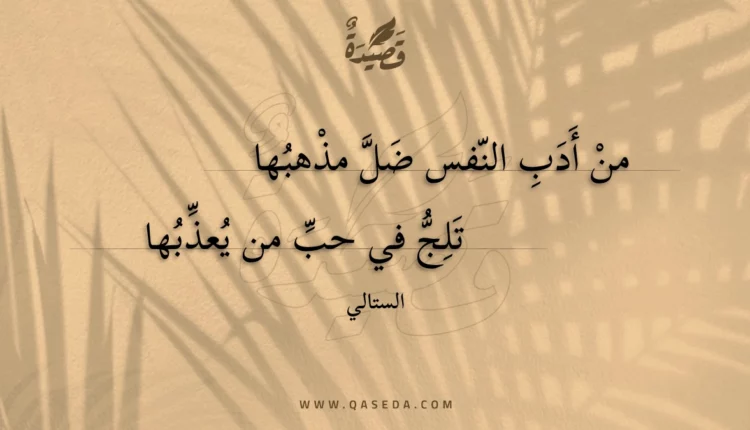 قَصِيْدَةٌ
منْ أَدَبِ النّفس ضَلَّ مذْهبُها
تَلِجُّ في حبِّ من يُعذِّبُها
الستالي
WWW.QASEDA.COM